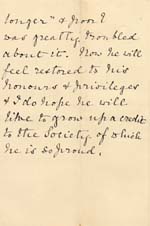 longer" & poor E
was greatly troubled
about it. Now he will
feel restored to his
honours & privileges
& I do hope he will
like to grow up a credit
to the Society of which
he is so proud.